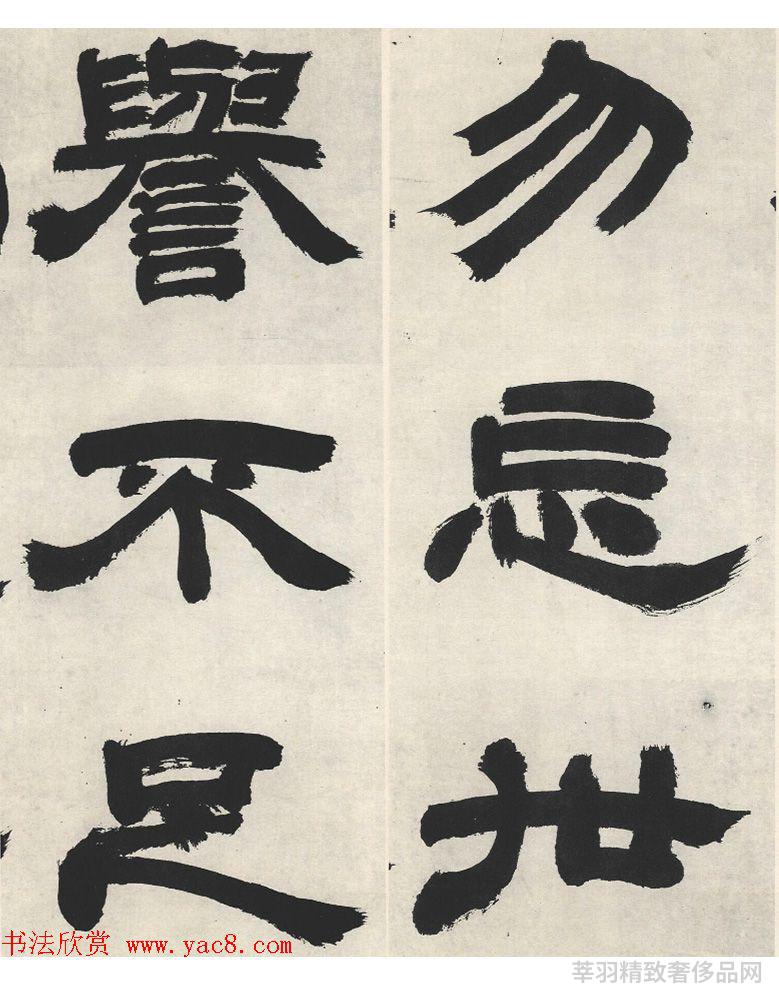 勿忘世
譽不足
书法欣赏 www.yac8.com
莘羽精致奢侈品网